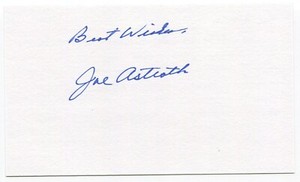 Best Wishes,
Joe Astroth